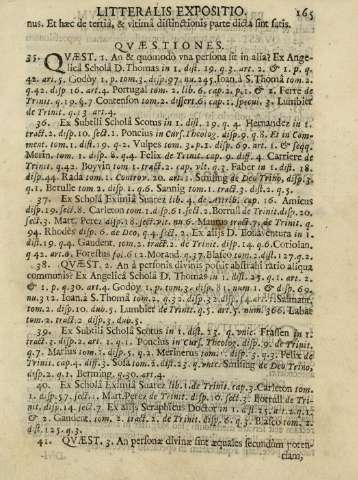 LITTERALIS EXPOSITIO. 165
nus. Et hæc de tertiâ, & vltimâ distinctionis parte dicta sint satis.
QVÆSTIONES.
35. QVÆST. 1. An & quomodo vna persona sit in alia? Ex Ange-
licâ Scholâ D. Thomas in 1. dist. 19. q. 3. art. 2. & 1. p. q.
42. art. 5. Godoy 1. p. tom. 3. disp. 97. nu. 245. Ioan. à S. Thoma tom. 2.
q. 42. disp. 16. art. 4. Portugal tom. 2. lib. 6. cap. 2. p. 1. & 2. Ferre de
Trinit. q. 19. §. 7. Contenson tom. 2. dissert. 6. cap. 1. specul. 3. Lumbier
de Trinit. q. 13. art. 4.
36. Ex Subtili Scholâ Scotus in 1. dist. 19. q. 4. Hernandez in 1.
tract. 2. disp. 10. sect. 1. Poncius in Curs. Theolog. disp. 9. q. 8. Et in Com-
ment. tom. 1. dist. 19. q. 2. Vulpes tom. 3. p. 1. disp. 42. art. 1. & seqq.
Merin. tom. 1. disp. 6. q. 4. Felix de Trinit. cap. 9. diff. 4. Carriere de
Trinit. q. 42. Boyvin tom. 1. tract. 2. cap. vlt. q. 3. Faber in 1. dist. 18.
disp. 44. Rada tom. 1. Controv. 20. art. 1. Smising de Deo Trino, disp. 3.
q. 1. Berulle tom. 2. disp. 1. q. 6. Sannig tom. 1. tract. 3. dist. 2. q. 5.
37. Ex Scholâ Eximiâ Suarez lib. 4. de Attrib. cap. 16. Amicus
disp. 19. sect. 8. Carleton tom. 1. disp. 61. sect. 2. Borrull de Trinit. disp. 20.
sect. 3. Mart. Perez disp. 18. sect. vlt. nu. 6. Mauro tract. 7. de Trinit. q.
94. Rhodes disp. 6. de Deo, q. 4. sect. 2. Ex alijs D. Bonaventura in 1.
dist. 19. q. 4. Gaudent. tom. 2. tract. 2. de Trinit. dist. 14. q. 6. Coriolan.
q. 42. art. 6. Forestus fol. 612. Morand. q. 37. Blasco tom. 2. dist. 127. q. 2.
38. QVÆST. 2. An à personis divinis possit abstrahi ratio aliqua
communis? Ex Angelicâ Scholâ D. Thomas in 1. dist. 25. q. 1. art. 2.
& 1. p. q. 30. art. 4. Godoy 1. p. tom. 3. disp. 81. num. 8. & disp. 69.
nu. 312. Ioan. à S. Thoma tom. 2. q. 32. disp. 32. disp. 14. art. Salmant.
tom. 2. disp. 10. dub. 5. Lumbier de Trinit. q. 5. art. 5. num. 366. Labat
tom. 2. tract. 2. disp. 3. dub. 5.
39. Ex Subtili Scholâ Scotus in 1. dist. 23. q. vnic. Frassen in 1.
tract. 3. disp. 2. art. 1. q. 1. Poncius in Curs. Theolog. disp. 9. de Trinit.
q. 7. Mastrius tom. 1. disp. 5. q. 2. Merinerus tom. 1. disp. 3. q. 3. Felix de
Trinit. cap. 4. diff. 3. Sola tom. 2. dist. 23. q. vnic. Smising de Deo Trino,
disp. 2. q. 1. Berniing. q. 30. art. 4.
40. Ex Scholâ Eximiâ Suarez lib. 1. de Trinit. cap. 3. Carleton tom.
1. disp. 57. sect. 1. Mart. Perez de Trinit. disp. 10. sect. 3. Borrull de Tri-
nit. disp. 14. sect. 7. Ex alijs Seraphicus Doctor in 1. dist. 25. a. 1. 2. q. 1.
& 2. Gaudent. tom. 2. tract. 2. de Trinit. dist. 6. q. 3. Blasco tom. 2.
dist. 125. q. 3.
41. QVÆST. 3. An personæ divinæ sint æquales secundùm poten-
tiam,